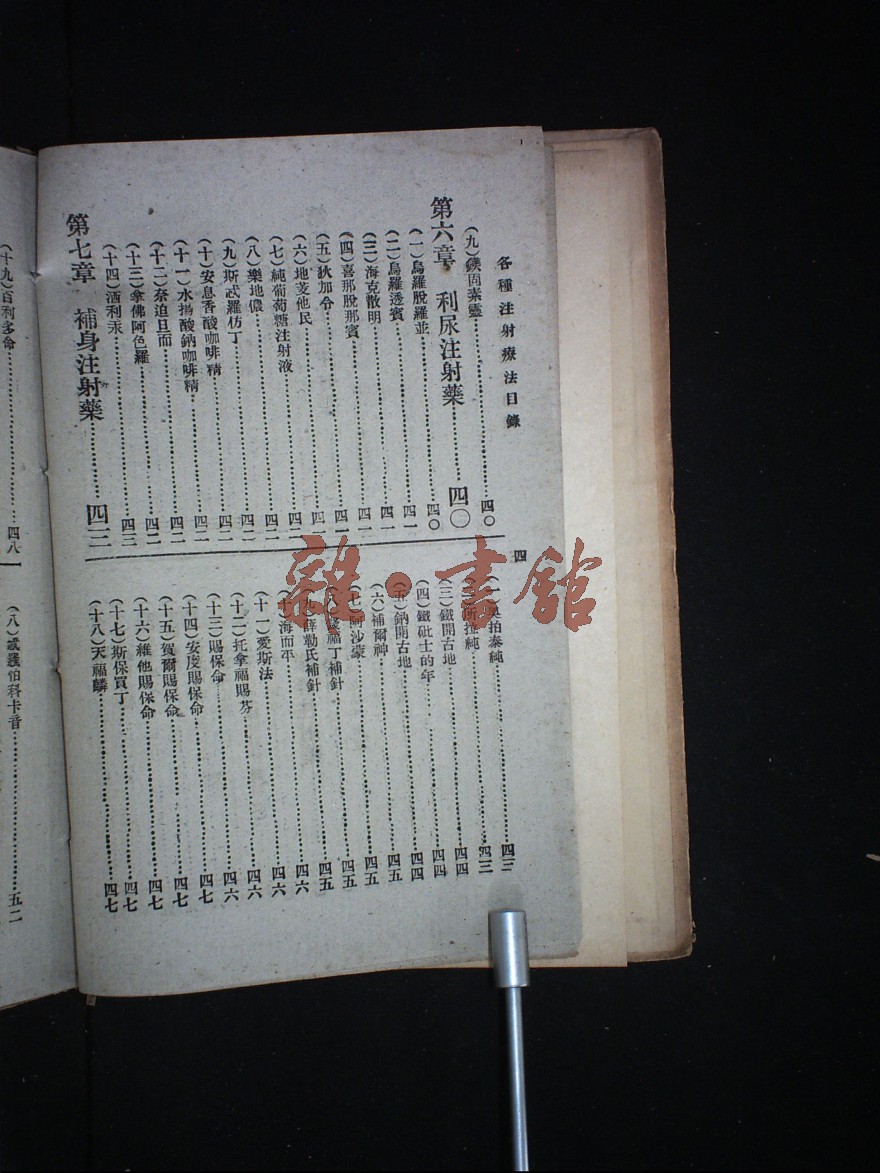 各種注射療法目錄
四
(九)鎂固素靈……四〇
第六章 利尿注射藥……四〇
(一)烏羅脫羅並……四〇
(二)烏羅透賓……四一
(三)海克散明……四一
(四)喜那脫那賓……四一
(五)狄加令……四一
(六)地芰他民……四二
(七)純葡萄糖注射液……四二
(八)樂地儂……四二
(九)斯忒羅仿丁……四二
(十)安息香酸咖啡精……四二
(十一)水揚酸鈉咖啡精……四二
(十二)奈迫旦而……四二
(十三)拿佛阿色羅……四二
(十四)洒利汞……四三
第七章 補身注射藥……四三
拍泰純……四三
純……四三
(三)鐵開古地……四四
(四)鐵砒士的年……四四
(五)鈉開古地……四四
(六)補爾神……四五
(七)阿沙蒙……四五
福丁補針……四五
(九)薛勒氏補針……四五
(十)海而平……四六
(十一)愛斯法……四六
(十二)托拿福賜芬……四六
(十三)賜保命……四六
(十四)安度賜保命……四七
(十五)賀爾賜保命……四七
(十六)維他賜保命……四七
(十七)斯保買丁……四七
(十八)天福麟……四七
(十九)百利多命……四八
(八)忒羅怕科卡音……五二
毅·書館